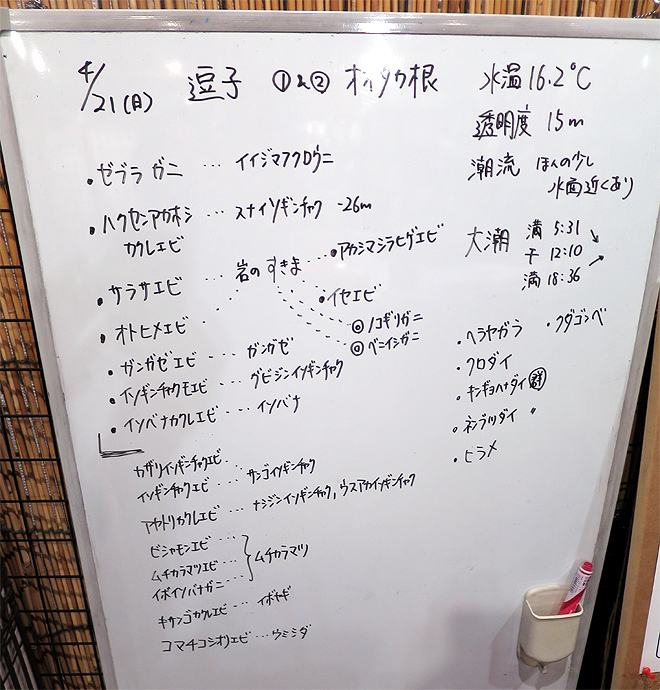 4/21(日) 逗子 ①&② オオタカ根
水温 16.2°C
透明度 15m
潮流 ほんの少し
水面近くあり
大潮 満 5:31
干 12:10
満 18:36
・ゼブラガニ … イイジマフクロウニ
・ハクセンアカホシ … スナイソギンチャク -26m
カクレエビ
・サラサエビ … 岩のすきま … ・アカシマシラヒゲエビ
・オトヒメエビ
・イセエビ
◎ノコギリガニ
◎ベニイシガニ
・ガンガゼエビ … ガンガゼ
・イソギンチャクモエビ … グビジンイソギンチャク
・イソバナカクレエビ … イソバナ
カザリイソギンチャクエビ
イソギンチャクエビ … サンゴイソギンチャク
アヤトリカクレエビ … ナシジイソギンチャク, ウスアカイソギンチャク
ビシャモンエビ
ムチカラマツエビ } ムチカラマツ
イボイソバナガニ
キサンゴカクレエビ … イボヤギ
コマチコシオリエビ … ウミシダ
・ヘラヤガラ ・クダゴンベ
・クロダイ
・キンギョハナダイ 群
・ネンブツダイ 〃
・ヒラメ